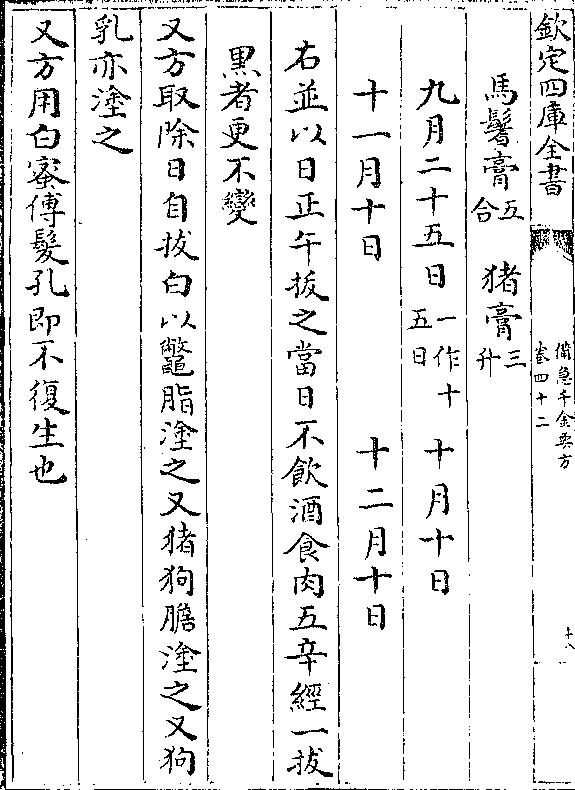 欽定四庫全書
備急千金要方
卷四十二
十八
馬鬐膏五合 猪膏三升
九月二十五日一作十五日 十月十日
十一月十日 十二月十日
右並以日正午拔之當日不飲酒食肉五辛經一拔
黑者更不變
又方取除日自拔白以鼈脂塗之又猪狗膽塗之又狗
乳亦塗之
又方用白蜜傅髮孔即不復生也